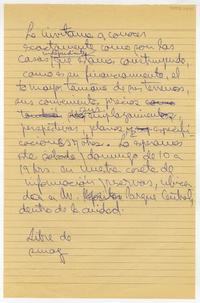 Lo invitamos a conocer
exactamente como son las
casas que estamos construyendo,
como es su financiamiento, el
tamaño de sus terrenos,
sus convenientes precios
emplazamientos
perspectivas, planos y especifi
caciones y otros. Lo esperamos
sábado y domingo de 10 a
19 hrs. en nuestra caseta de
información y reservas, ubica
da a Parque Central,
dentro de la ciudad.
Libre do